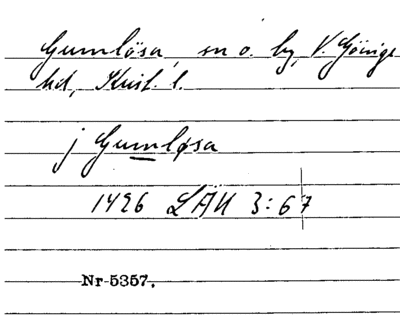 Gumlösa, sn o. by, V. Göinge
hd, Krist. l.
j Gumløsa
1426 LÄU 3:67
Nr 5357.